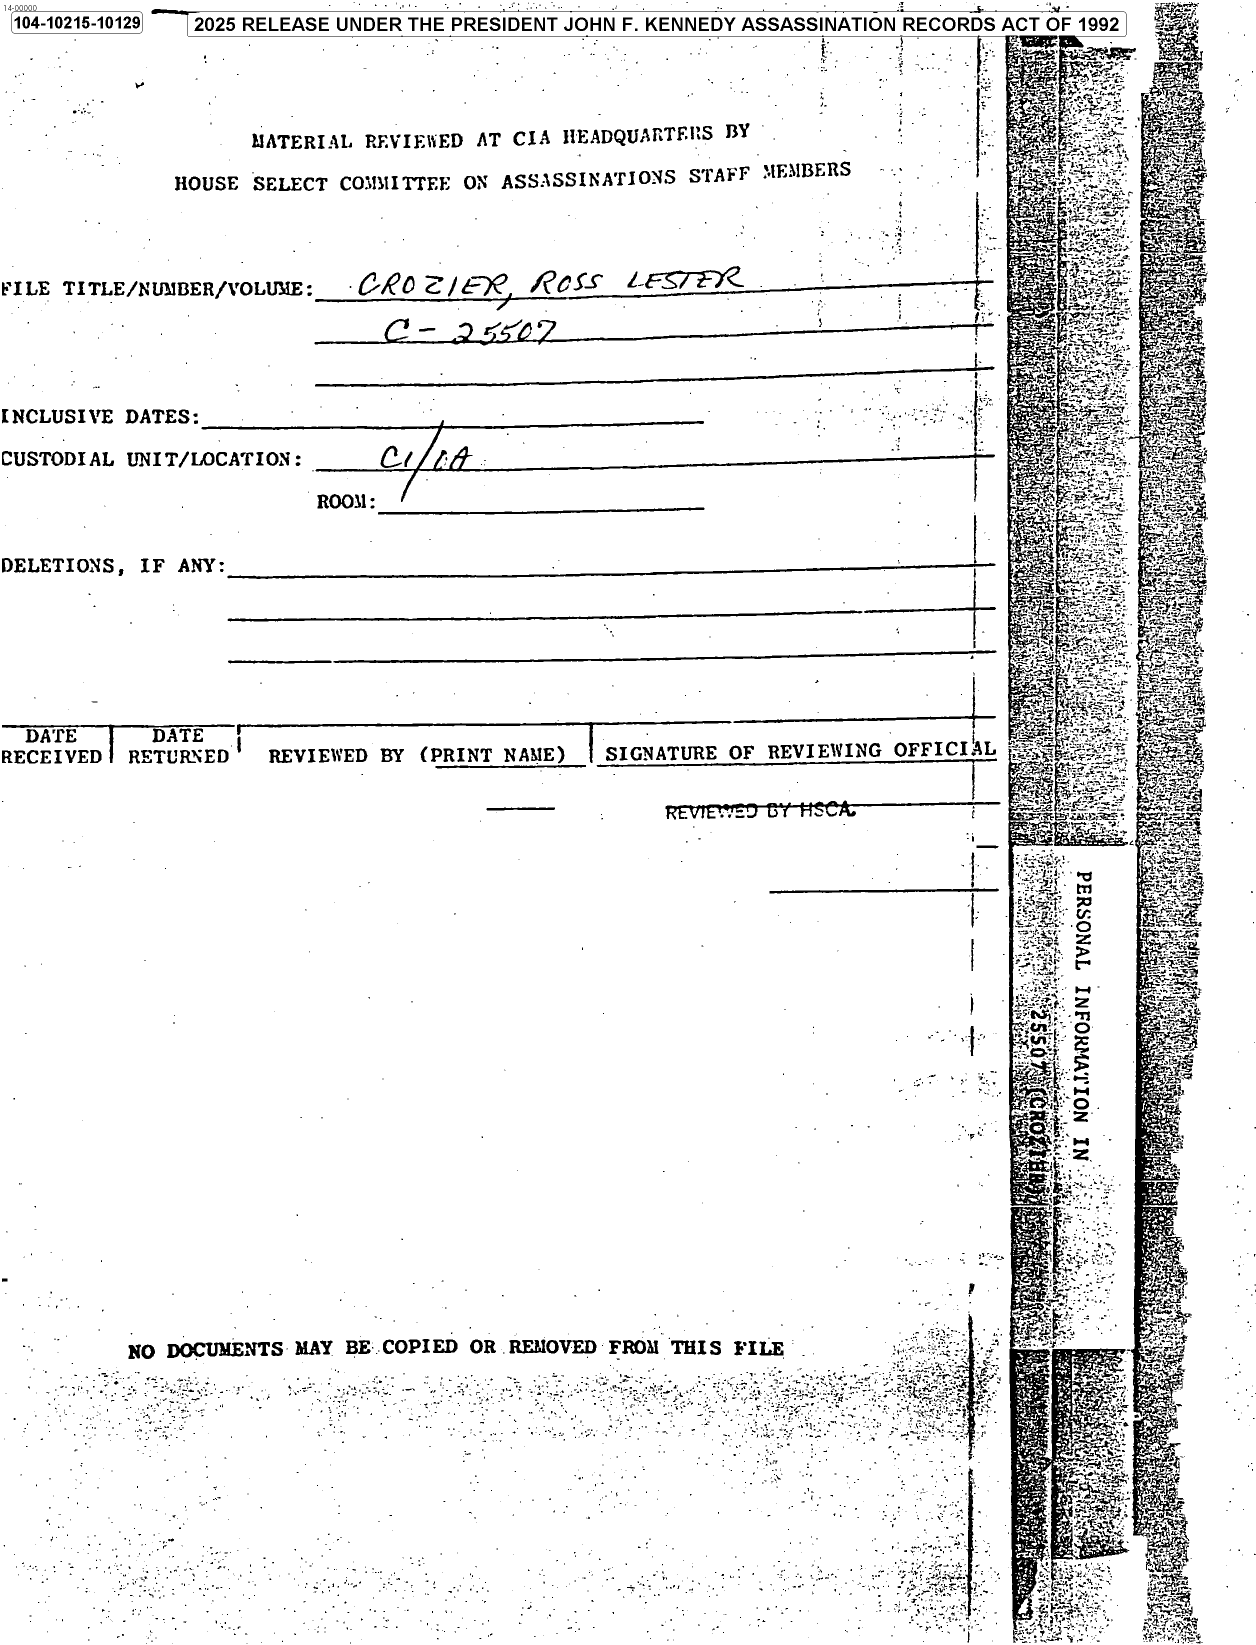 14-00000
104-10215-10129
2025 RELEASE UNDER THE PRESIDENT JOHN F. KENNEDY ASSASSINATION RECORDS ACT OF 1992
MATERIAL REVIEWED AT CIA HEADQUARTERS BY
HOUSE SELECT COMMITTEE ON ASSASSINATIONS STAFF MEMBERS
FILE TITLE/NUMBER/VOLUME: CROZIER, ROSS LESTER
C-25507
INCLUSIVE DATES:
CUSTODIAL UNIT/LOCATION: CI/OA
ROOM:
DELETIONS, IF ANY:
DATE RECEIVED DATE RETURNED REVIEWED BY (PRINT NAME) SIGNATURE OF REVIEWING OFFICIAL
REVIEWED BY HSCA
PERSONAL INFORMATION IN
25507 (CROZIER)
NO DOCUMENTS MAY BE COPIED OR REMOVED FROM THIS FILE